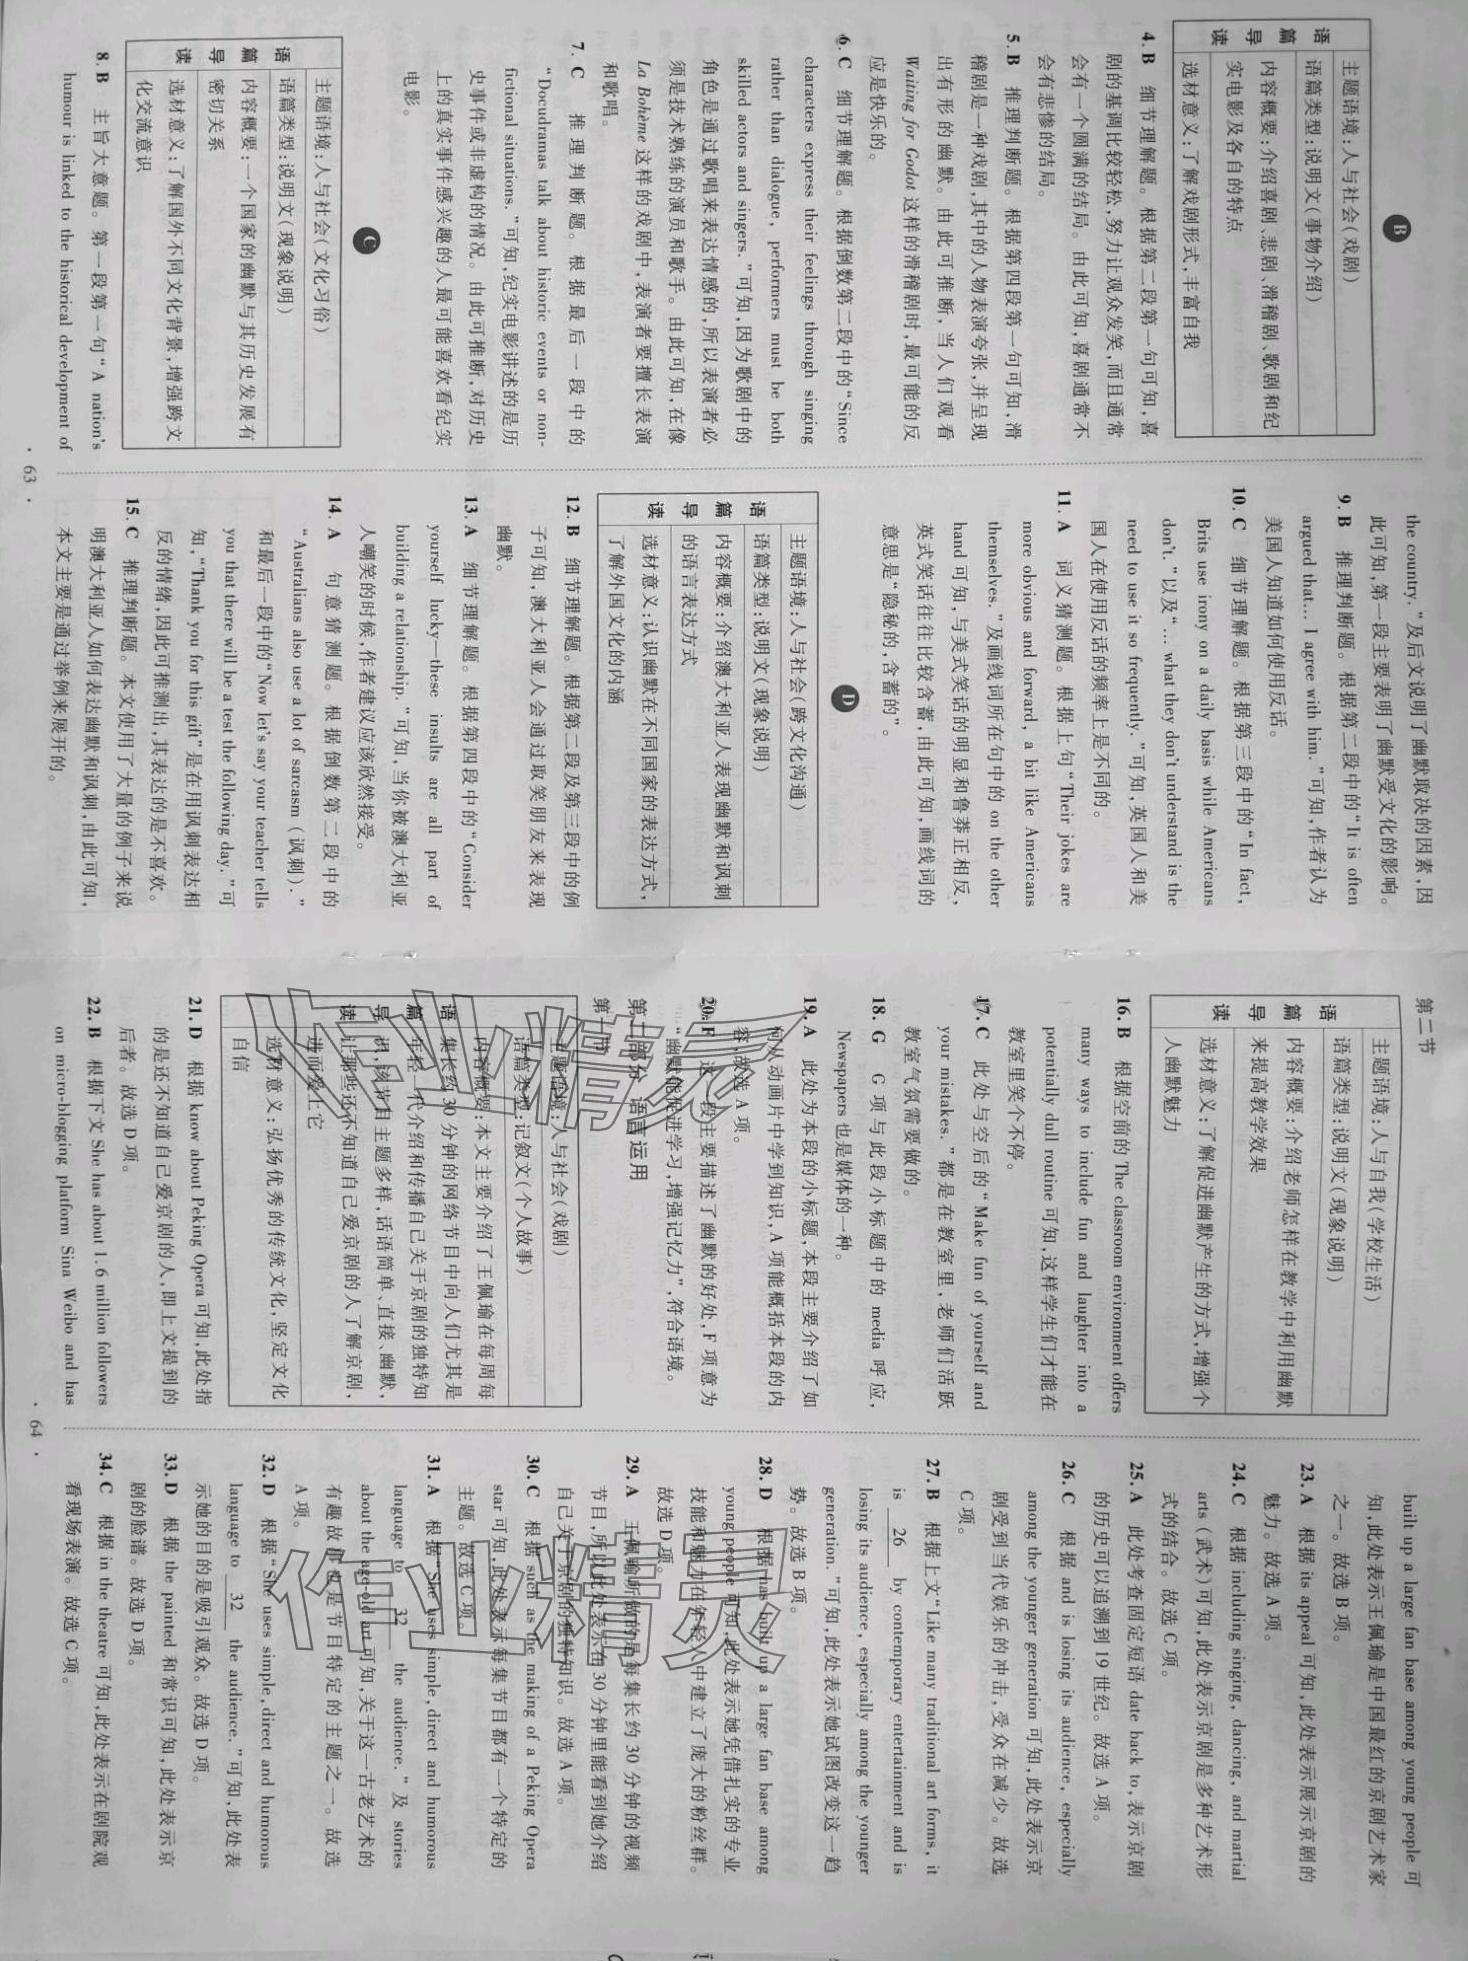 B
语篇导读
主题语境:人与社会(戏剧)
语篇类型:说明文(事物介绍)
内容概要:介绍喜剧、悲剧、滑稽剧、歌剧和纪
实电影及各自的特点
选材意义:了解戏剧形式,丰富自我
4. B 细节理解题。根据第二段第一句可知,喜
剧的基调比较轻松,努力让观众发笑,而且通常
会有一个圆满的结局。由此可知,喜剧通常不
会有悲惨的结局。
5. B 推理判断题。根据第四段第一句可知,滑
稽剧是一种戏剧,其中的人物表演夸张,并呈现
出有形的幽默。由此可推断,当人们观看
Waiting for Godot 这样的滑稽剧时,最可能的反
应是快乐的。
6. C 细节理解题。根据倒数第二段中的“Since
characters express their feelings through singing
rather than dialogue, performers must be both
skilled actors and singers.”可知,因为歌剧中的
角色是通过歌唱来表达情感的,所以表演者必
须是技术熟练的演员和歌手。由此可知,在像
La Bohème 这样的戏剧中,表演者要擅长表演
和歌唱。
7. C 推理判断题。根据最后一段中的
“Docudramas talk about historic events or non-
fictional situations.”可知,纪实电影讲述的是历
史事件或非虚构的情况。由此可推断,对历史
上的真实事件感兴趣的人最可能喜欢看纪实
电影。
C
语篇导读
主题语境:人与社会(文化习俗)
语篇类型:说明文(现象说明)
内容概要:一个国家的幽默与其历史发展有
密切关系
选材意义:了解国外不同文化背景,增强跨文
化交流意识
8. B 主旨大意题。第一段第一句“A nation's
humour is linked to the historical development of
· 63 ·
the country.”及后文说明了幽默取决的因素,因
此可知,第一段主要表明了幽默受文化的影响。
9. B 推理判断题。根据第二段中的“It is often
argued that... I agree with him.”可知,作者认为
美国人知道如何使用反话。
10. C 细节理解题。根据第三段中的“In fact,
Brits use irony on a daily basis while Americans
don't.”以及“... what they don't understand is the
need to use it so frequently.”可知,英国人和美
国人在使用反话的频率上是不同的。
11. A 词义猜测题。根据上句“Their jokes are
more obvious and forward, a bit like Americans
themselves.”及画线词所在句中的 on the other
hand 可知,与美式笑话的明显和鲁莽正相反,
英式笑话往往比较含蓄,由此可知,画线词的
意思是“隐秘的,含蓄的”。
D
语篇导读
主题语境:人与社会(跨文化沟通)
语篇类型:说明文(现象说明)
内容概要:介绍澳大利亚人表现幽默和讽刺
的语言表达方式
选材意义:认识幽默在不同国家的表达方式,
了解外国文化的内涵
12. B 细节理解题。根据第二段及第三段中的例
子可知,澳大利亚人会通过取笑朋友来表现
幽默。
13. A 细节理解题。根据第四段中的“Consider
yourself lucky—these insults are all part of
building a relationship.”可知,当你被澳大利亚
人嘲笑的时候,作者建议应该欣然接受。
14. A 句意猜测题。根据倒数第二段中的
“Australians also use a lot of sarcasm (讽刺).”
和最后一段中的“Now let's say your teacher tells
you that there will be a test the following day.”可
知,“Thank you for this gift”是在用讽刺表达相
反的情绪,因此可推测出,其表达的是不喜欢。
15. C 推理判断题。本文使用了大量的例子来说
明澳大利亚人如何表达幽默和讽刺,由此可知,
本文主要是通过举例来展开的。
第二节
语篇导读
主题语境:人与自我(学校生活)
语篇类型:说明文(现象说明)
内容概要:介绍老师怎样在教学中利用幽默
来提高教学效果
选材意义:了解促进幽默产生的方式,增强个
人幽默魅力
16. B 根据空前的 The classroom environment offers
many ways to include fun and laughter into a
potentially dull routine 可知,这样学生们才能在
教室里笑个不停。
17. C 此处与空后的“Make fun of yourself and
your mistakes.”都是在教室里,老师们活跃
教室气氛需要做的。
18. G G 项与此段小标题中的 media 呼应,
Newspapers 也是媒体的一种。
19. A 此处为本段的小标题,本段主要介绍了如
何从动画片中学到知识,A 项能概括本段的内
容,故选 A 项。
20. F 这一段主要描述了幽默的好处,F 项意为
“幽默能促进学习,增强记忆力”,符合语境。
第二部分 语言运用
第一节
语篇导读
主题语境:人与社会(戏剧)
语篇类型:记叙文(个人故事)
内容概要:本文主要介绍了王佩瑜在每周每
集长约 30 分钟的网络节目中向人们尤其是
年轻一代介绍和传播自己关于京剧的独特知
识,该节目主题多样,话语简单、直接、幽默,
让那些还不知道自己爱京剧的人了解京剧,
进而爱上它
选材意义:弘扬优秀的传统文化,坚定文化
自信
21. D 根据 know about Peking Opera 可知,此处指
的是还不知道自己爱京剧的人,即上文提到的
后者。故选 D 项。
22. B 根据下文 She has about 1.6 million followers
on micro-blogging platform Sina Weibo and has
· 64 ·
built up a large fan base among young people 可
知,此处表示王佩瑜是中国最红的京剧艺术家
之一。故选 B 项。
23. A 根据 its appeal 可知,此处表示展示京剧的
魅力。故选 A 项。
24. C 根据 including singing, dancing, and martial
arts (武术)可知,此处表示京剧是多种艺术形
式的结合。故选 C 项。
25. A 此处考查固定短语 date back to,表示京剧
的历史可以追溯到 19 世纪。故选 A 项。
26. C 根据 and is losing its audience, especially
among the younger generation 可知,此处表示京
剧受到当代娱乐的冲击,受众在减少。故选
C 项。
27. B 根据上文“Like many traditional art forms, it
is 26 by contemporary entertainment and is
losing its audience, especially among the younger
generation.”可知,此处表示她试图改变这一趋
势。故选 B 项。
28. D 根据 has built up a large fan base among
young people 可知,此处表示她凭借扎实的专业
技能和魅力在年轻人中建立了庞大的粉丝群。
故选 D 项。
29. A 王佩瑜所做的是每集长约 30 分钟的视频
节目,所以此处表示在 30 分钟里能看到她介绍
自己关于京剧的独特知识。故选 A 项。
30. C 根据 such as the making of a Peking Opera
star 可知,此处表示每集节目都有一个特定的
主题。故选 C 项。
31. A 根据“She uses simple, direct and humorous
language to 32 the audience.”及 stories
about the age-old art 可知,关于这一古老艺术的
有趣故事也是节目特定的主题之一。故选
A 项。
32. D 根据“She uses simple, direct and humorous
language to 32 the audience.”可知,此处表
示她的目的是吸引观众。故选 D 项。
33. D 根据 the painted 和常识可知,此处表示京
剧的脸谱。故选 D 项。
34. C 根据 in the theatre 可知,此处表示在剧院观
看现场表演。故选 C 项。
作业精灵
作业精灵